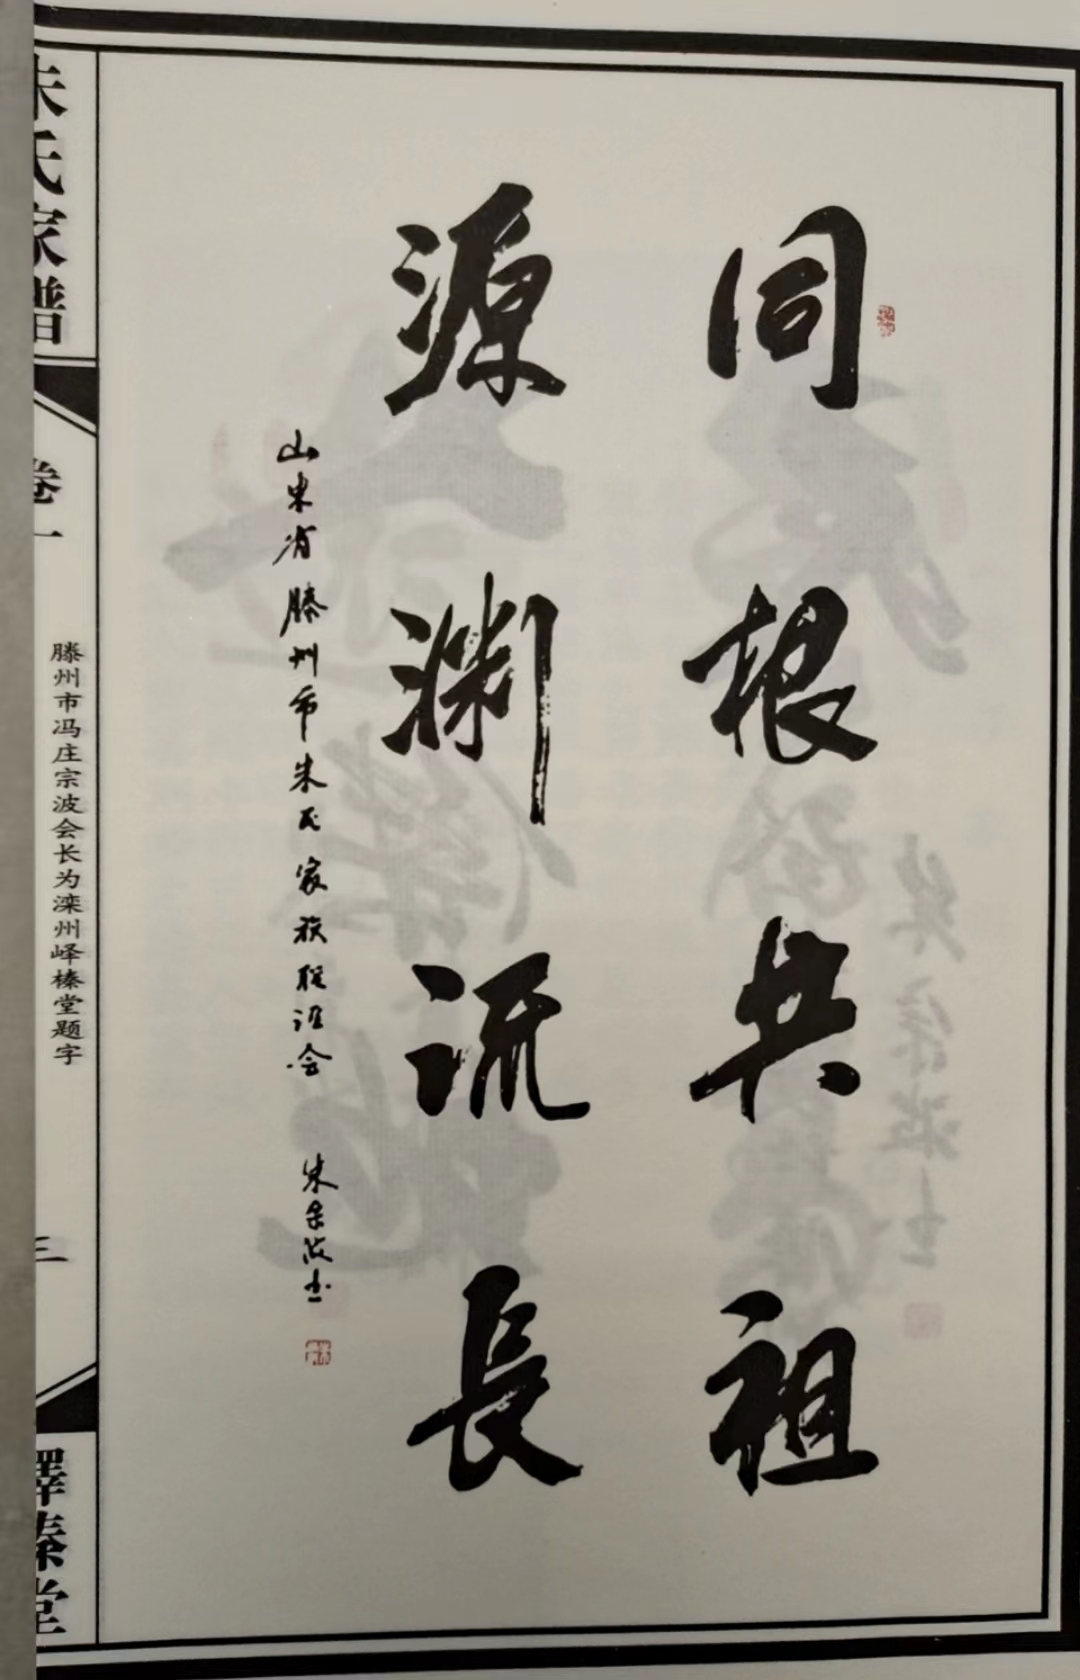 同根共祖
源渊流长
山东省滕州市朱氏家族联谊会 朱宗波书
朱氏家谱
卷一
滕州市冯庄宗波会长为滦州峄榛堂题字
三
嶧榛堂